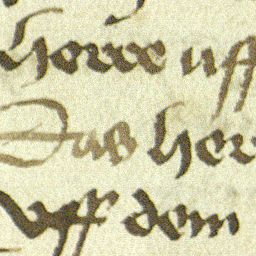 horre uff
Das her
Vff dem